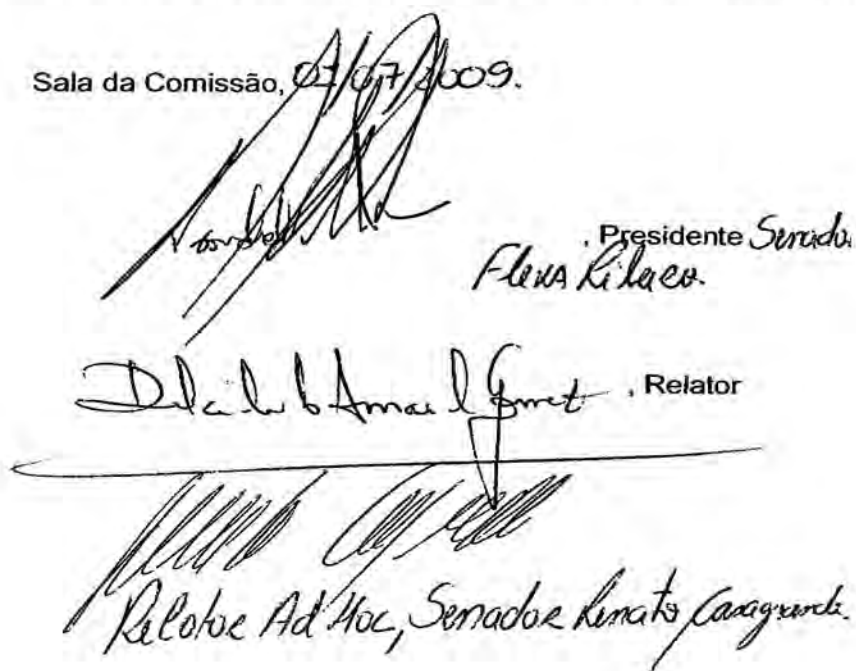 Sala da Comissão, 01/07/2009.
, Presidente Senador
Flexa Ribeiro.
Delcídio do Amaral Gomez , Relator
Relator Ad Hoc, Senador Renato Casagrande.